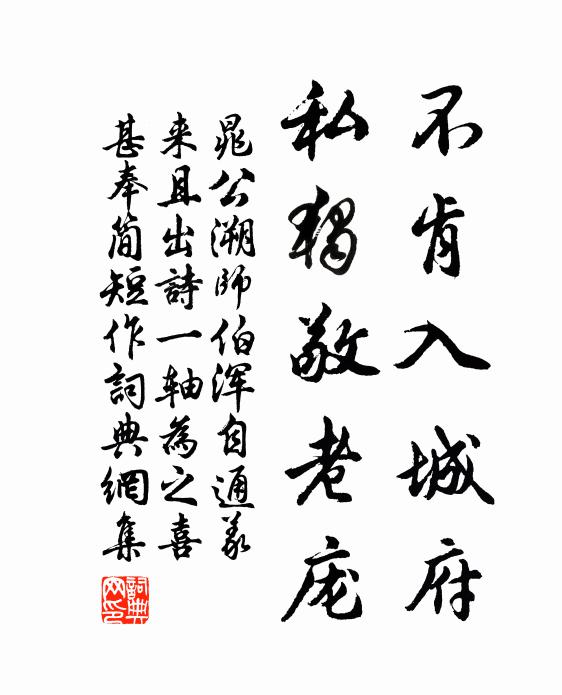 不肯入城府
私獨敬老庞
晁公溯師伯浑自通義
来且出詩一軸為之喜
甚奉简短作詞典網集
詞典网印